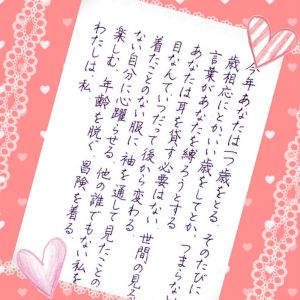 今年あなたはひとつ歳をとる。そのたびに
歳相応にとか、いい歳をしてとか、つまらない
言葉があなたを縛ろうとする。
あなたは耳を貸す必要はない。世間の見る
目なんていつだって後から変わる。
着たことのない服に袖を通して、見たことの
ない自分に心躍らせる。他の誰でもない私を
楽しむ。年齢を脱ぐ。冒険を着る。
わたしは、私。